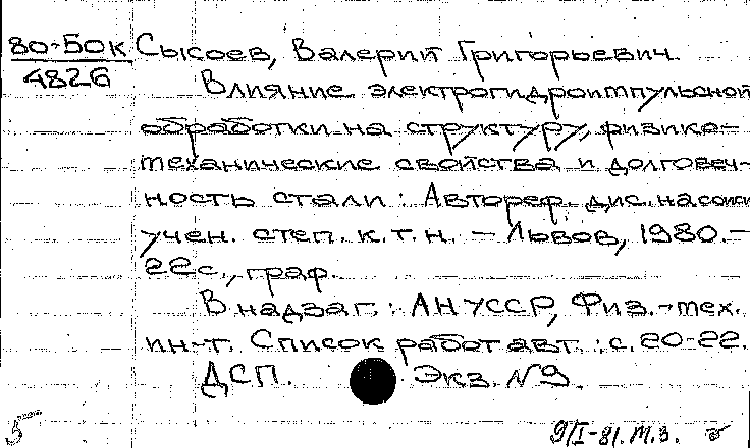 80-50к Сысоев, Валерий Григорьевич.
4826
Влияние электрогидроимпульсной
обработки на структуру, физико-
механические свойства и долговеч-
ность стали : Автореф. дис. на соиск.
учен. степ. к. т. н. – Львов, 1980. –
22 с., граф.
В надзаг. : АН УССР, Физ.-тех.
ин-т. Список работ авт. : с. 20-22.
ДСП. Экз. №9.
5 9/I-81. М.З.